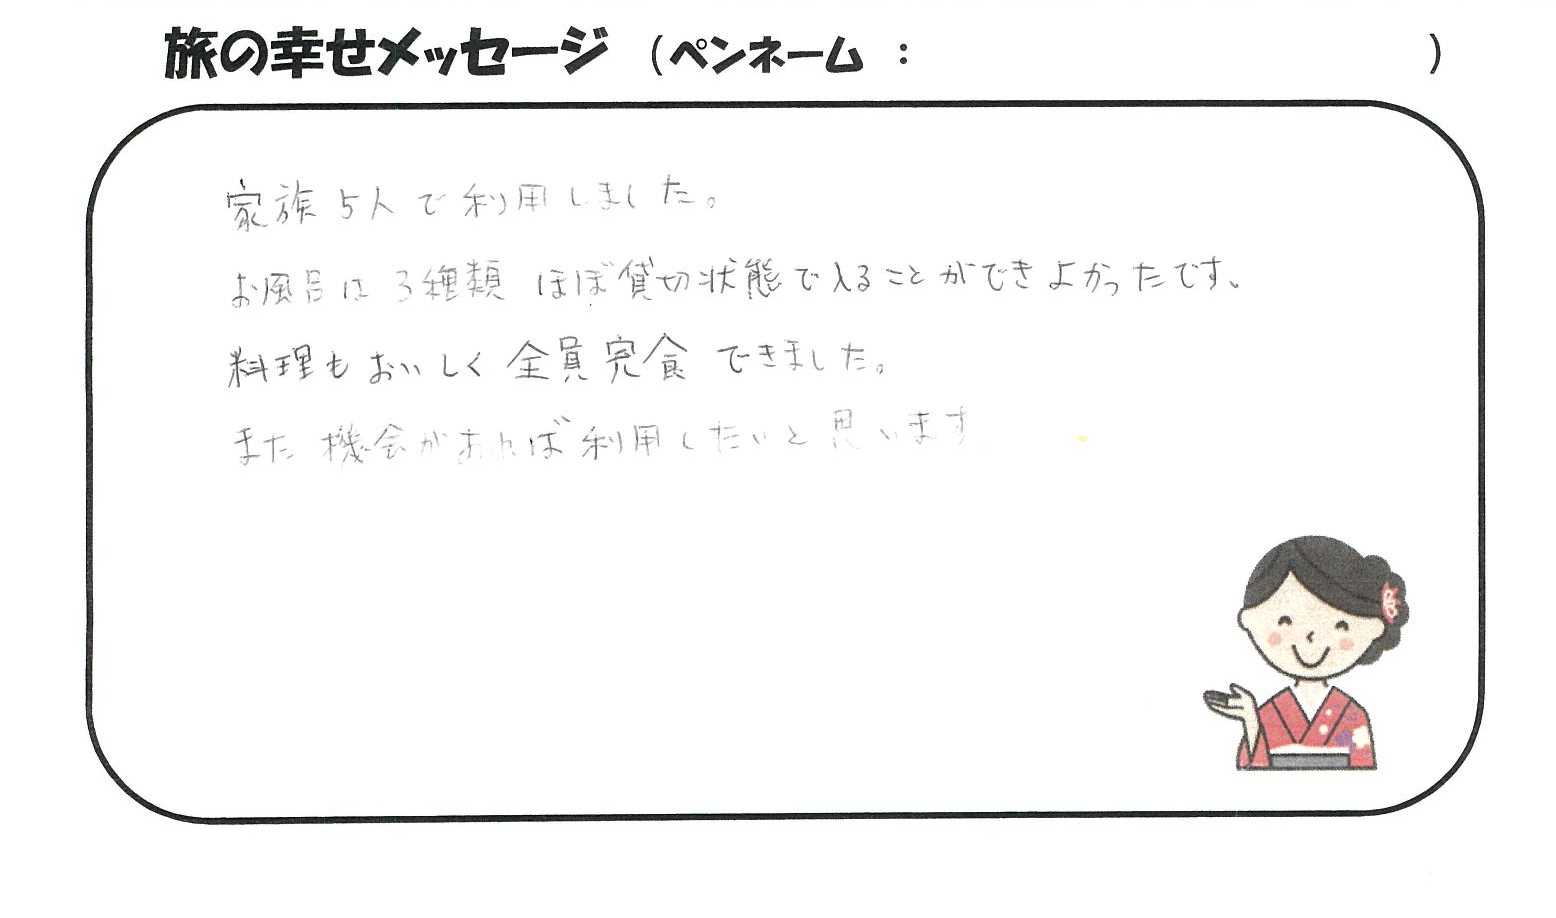 旅の幸せメッセージ （ペンネーム：　　　　　　　　）
家族5人で利用しました。
お風呂は3種類ほぼ貸切状態で入ることができよかったです。
料理もおいしく全員完食できました。
また機会があれば利用したいと思います